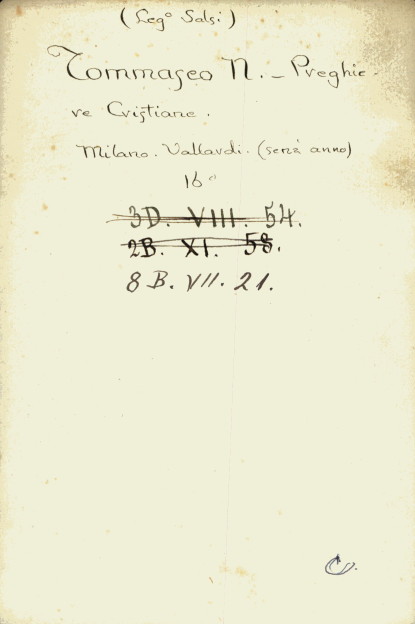 (Leg° Salsi)
Tommaseo N. - Preghie-
re Cristiane.
Milano. Vallardi. (senz' anno)
16°
3D. VIII. 54.
2B. XI. 58.
8 B. VII. 21.